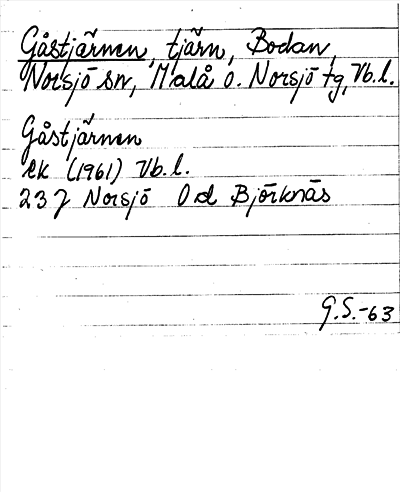 Gåstjärnen, tjärn, Bodan,
Norsjö sn, Malå o. Norsjö tg, Vb.l.
Gåstjärnen
ek (1961) Vb.l.
23 J Norsjö 0 d Björknäs
G.S.-63